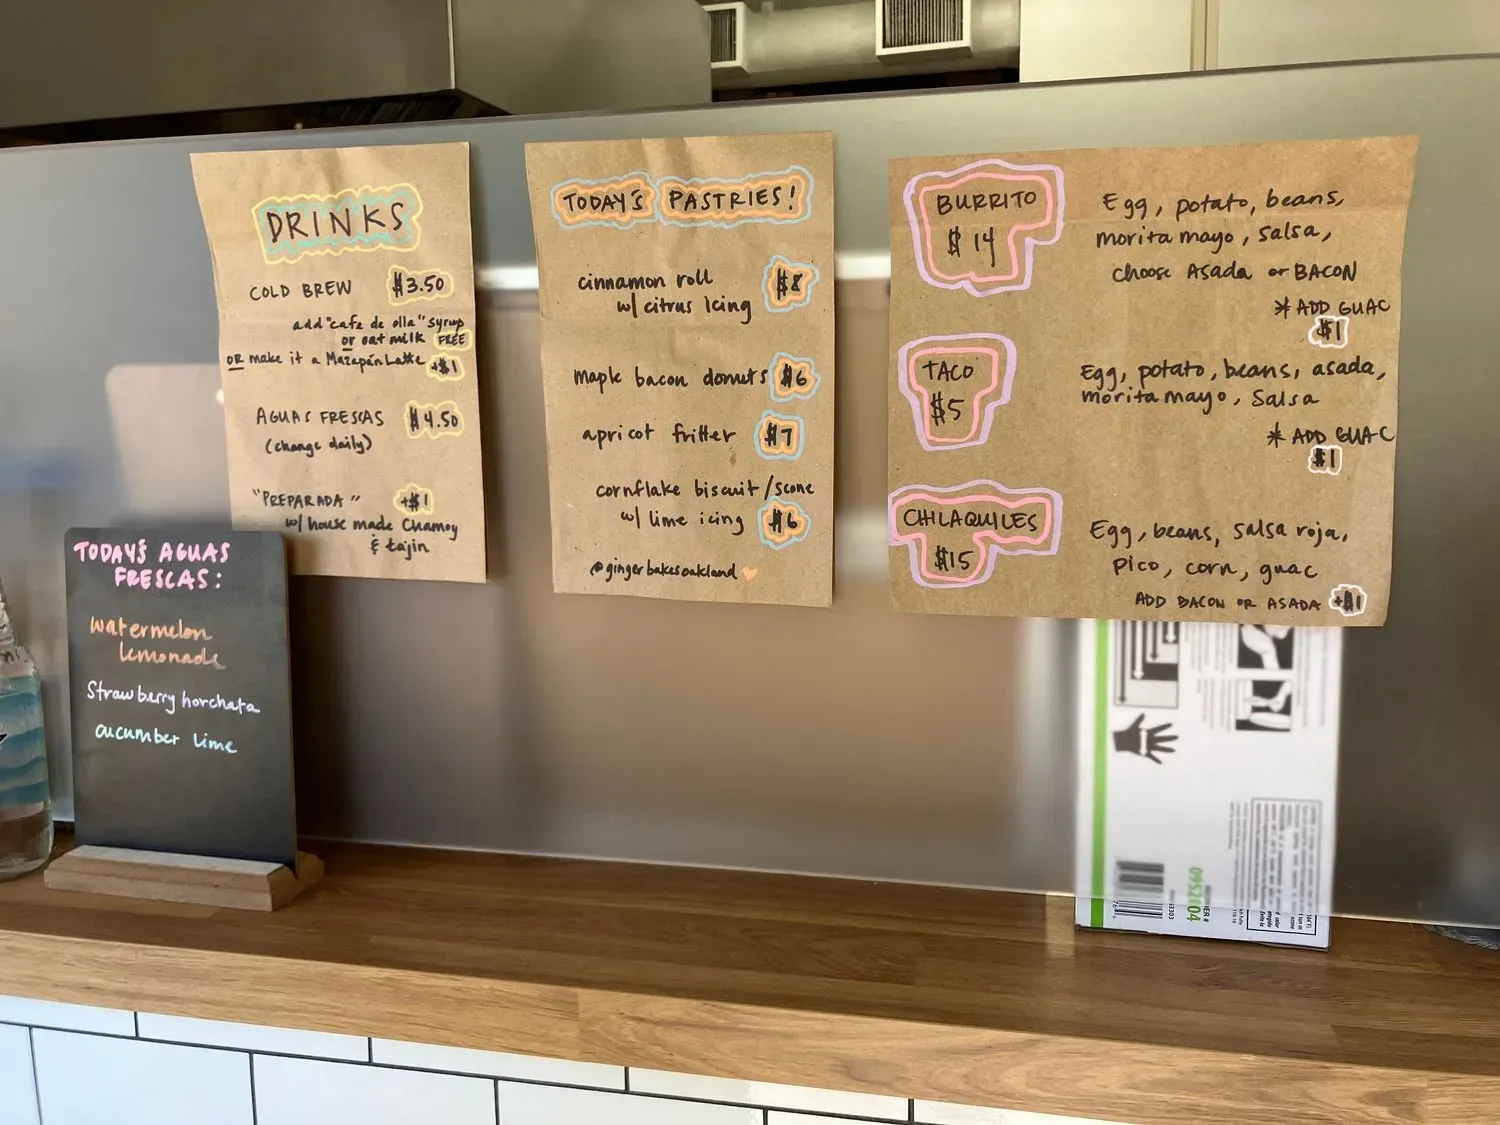 DRINKS
COLD BREW $3.50
add "cafe de olla" syrup
or oat milk FREE
OR make it a Mazapán Latte +$1
AGUAS FRESCAS $4.50
(change daily)
"PREPARADA" +$1
w/ house made Chamoy
& tajin
TODAY'S PASTRIES!
cinnamon roll $8
w/ citrus Icing
maple bacon donuts $6
apricot fritter $7
cornflake biscuit/scone
w/ lime icing $6
@gingerbakesoakland
BURRITO
$14
Egg, potato, beans,
morita mayo, salsa,
choose Asada or BACON
* ADD GUAC
$1
TACO
$5
Egg, potato, beans, asada,
morita mayo, Salsa
* ADD GUAC
$1
CHILAQUILES
$15
Egg, beans, salsa roja,
pico, corn, guac
ADD BACON OR ASADA +$1
TODAY'S AGUAS
FRESCAS:
watermelon
lemonade
Strawberry horchata
cucumber lime